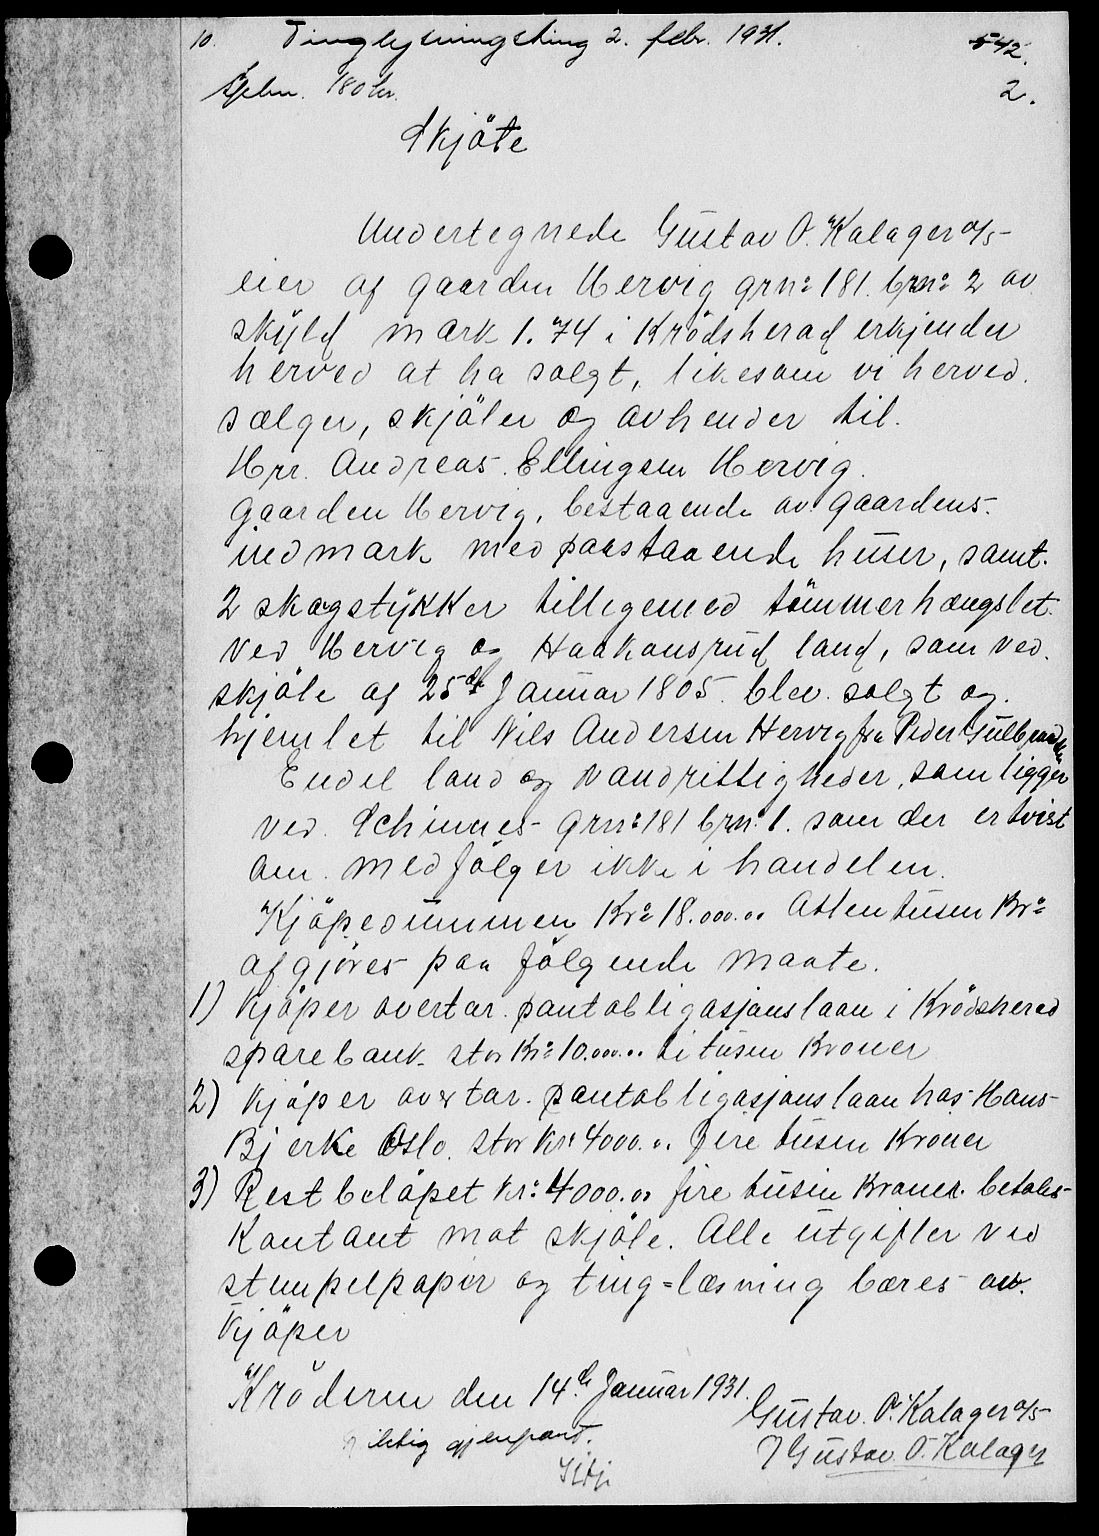 10. Tinglysningsting 2. febr. 1931. 542.
180 kr. 2.
Skjöte
Undertegnede Gustav O. Kalager a/s
eier af gaarden Hervig grn: 181. brn: 2 av
skyld mark 1.74 i Krödsherad erkjender
herved at ha solgt, likesom vi herved
sælger, skjöter og avhender til
Hrr. Andreas Ellingsen Hervig.
Gaarden Hervig, bestaaende av Gaardens
indmark med paastaaende huser, samt
2 skogstykker tilligemed tömmerhængslet
ved Hervig og Haakansrud land, som ved
skjöte af 25de Januar 1805 blev solgt og
hjemlet til Nils Andersen Hervig fra Peder Gulbrandsen
Endel land og Vandrittigheder, som ligger
ved Schinnes Grn: 181 brn: 1. som der er tvist
om. medfölger ikke i handelen.
Kjöpesummen Kr: 18.000.00 Atten tusen Kr:
afgjöres paa fölgende maate.
1) Kjöper overtar pantobligasjonslaan i Krödsherad
sparebank stor Kr: 10.000.00 ti tusen Kroner
2) Kjöper overtar pantobligasjonslaan hos Hans
Bjerke Oslo. stor Kr: 4000.00 fire tusen Kroner
3) Restbelöpet Kr: 4000.00 fire tusen Kroner betales
Kontant mot skjöte. Alle utgifter ved
stempelpapir og ting=læsning bæres av
Kjöper
Kröderen den 14de Januar 1931.
Gustav. O. Kalager a/s
gjenpart.
Gustav O. Kalager